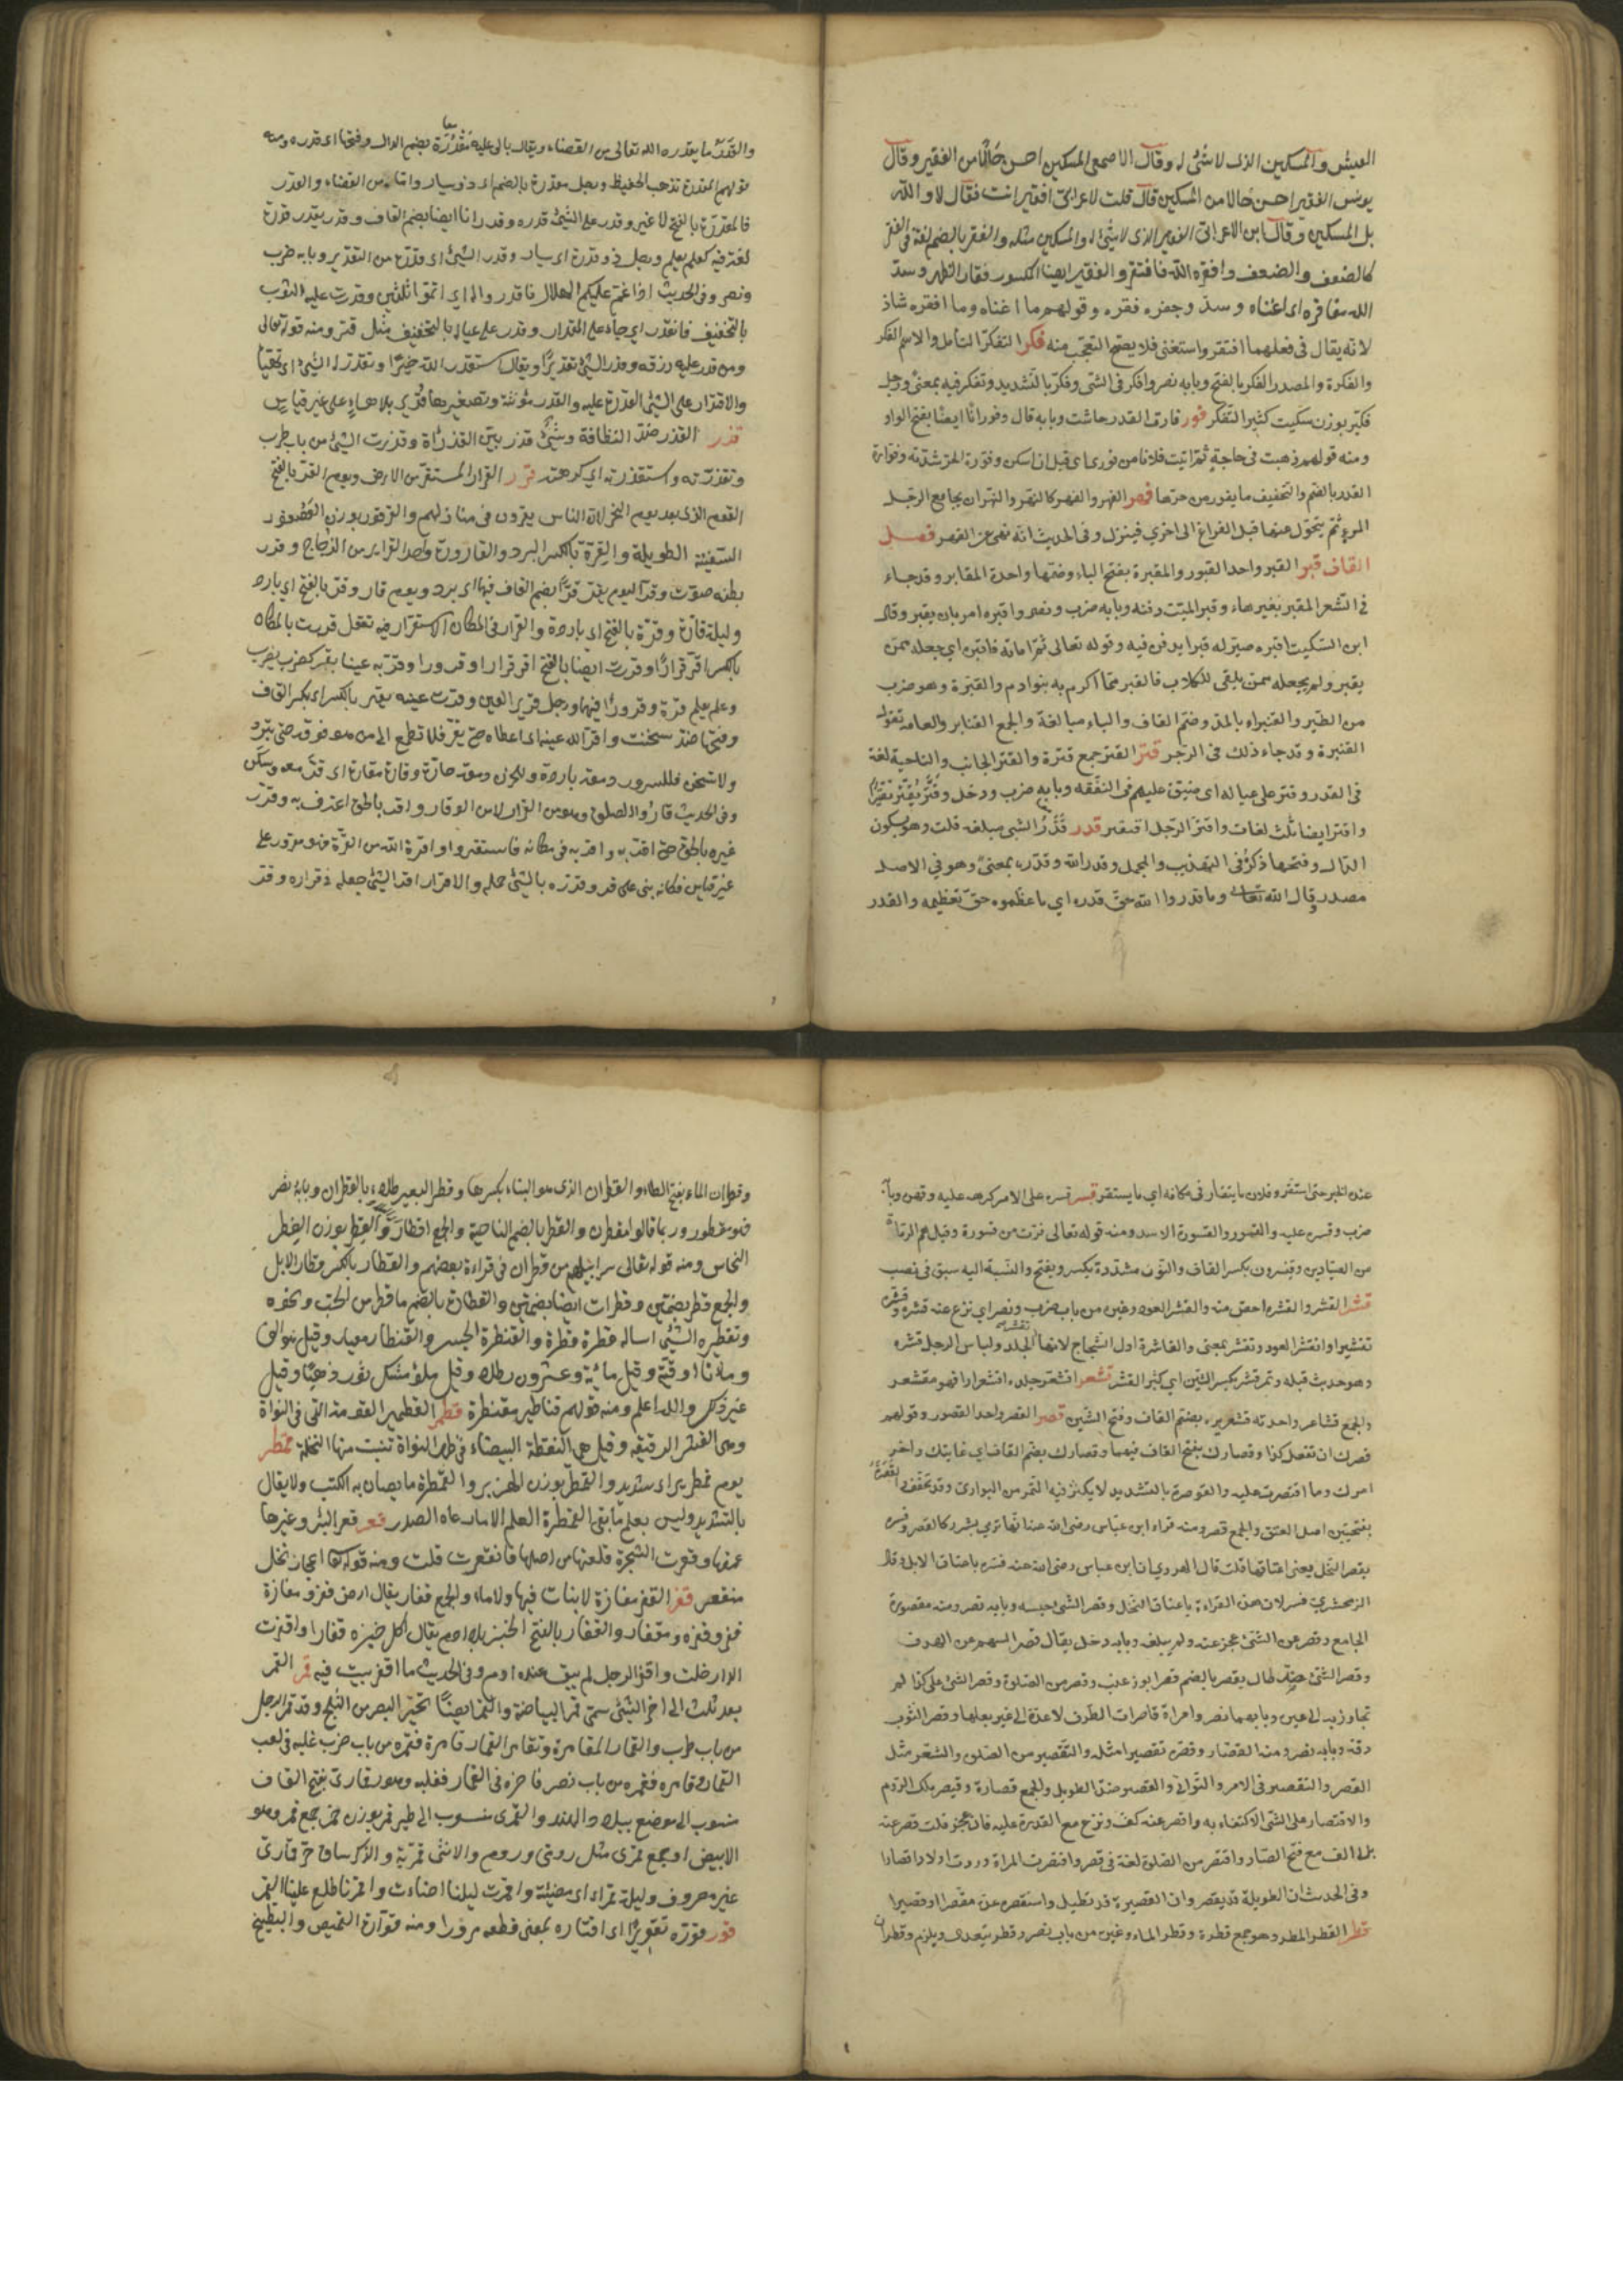 العيش والمسكين الذى لا شئ له وقال الاصمعى المسكين احسن حالا من الفقير وقال
يونس الفقير احسن حالا من المسكين قال قلت لاعرابى افقير انت فقال لا والله
بل المسكين وقال ابن الاعرابى الفقير الذى لا شئ له والمسكين مثله والفقر بالضم لغة فى الفقر
كالضعف والضعف وافقره الله فافتقر والفقير ايضا المكسور فقار الظهر وسد
الله مفاقره اى اغناه وسد وجوه فقره وقولهم ما اغناه وما افقره شاذ
لانه يقال فى فعلهما افتقر واستغنى فلا يصح التعجب منه فكر التفكر التأمل والاسم الفكر
والفكرة والمصدر الفكر بالفتح وبابه نصر وافكر فى الشئ وفكر بالتشديد وتفكر فيه بمعنى ورجل
فكير بوزن سكيت كثير التفكر فور فارت القدر جاشت وبابه قال وفورانا ايضا بفتح الواو
ومنه قولهم ذهبت فى حاجة ثم اتيت فلانا من فورى اى قبل ان اسكن وفورة الحر شدته وفوارة
القدر بالضم والتخفيف ما يفور من حرها فهر الفهر والفهر كالنهر والنهر ان يجامع الرجل
المرأة ثم يتحول عنها قبل الفراغ الى اخرى فينزل وفى الحديث انه نهى عن الفهر فصل
القاف قبر القبر واحد القبور والمقبرة بفتح الباء وضمها واحدة المقابر وقد جاء
فى الشعر المقبر بغير هاء وقبر الميت دفنه وبابه ضرب ونصر واقبره امر بان يقبر وقال
ابن السكيت اقبره صير له قبرا يدفن فيه وقوله تعالى ثم اماته فاقبره اى جعله ممن
يقبر ولم يجعله ممن يلقى للكلاب فالقبر مما اكرم به بنو ادم والقبرة وهو ضرب
من الطير والقنبراء بالمد وضم القاف والباء مبالغة والجمع القنابر والعامة تقول
القنبرة وقد جاء ذلك فى الرجز قتر القتر جمع قترة والقتر الجانب والناحية لغة
فى القدر وقتر على عياله اى ضيق عليهم فى النفقة وبابه ضرب ودخل وقتر يقتر تقتيرا
واقتر ايضا ثلث لغات واقتر الرجل افتقر قدر قدر الشئ مبلغه قلت وهو بسكون
الدال وفتحها ذكره فى التهذيب والمجمل وقدر الله وقدره بمعنى وهو فى الاصل
مصدر وقال الله تعالى وما قدروا الله حق قدره اى ما عظموه حق تعظيمه والقدر
والقدر ما يقدره الله تعالى من القضاء ويقال مالى عليه مقدرة بضم الدال وفتحها اى قدرة ومنه
قولهم المقدرة تذهب الحفيظة ورجل مقدرة بالضم اى ذو يسار واما من القضاء والقدر
فالمقدرة بالفتح لا غير وقدر على الشئ قدرة وقدرانا ايضا بضم القاف وقدر يقدر قدرة
لغة فيه كعلم يعلم ورجل ذو قدرة اى يسار وقدر الشئ اى قدره من التقدير وبابه ضرب
ونصر وفى الحديث اذا غم عليكم الهلال فاقدروا له اى اتموا ثلثين وقدرت عليه الثوب
بالتخفيف فانقدر اى جاء على المقدار وقدر على عياله بالتخفيف مثل قتر ومنه قوله تعالى
ومن قدر عليه رزقه وقدر الشئ تقديرا ويقال استقدر الله خيرا وتقدر له الشئ اى تهيأ
والاقتدار على الشئ القدرة عليه والقدر مؤنثة وتصغيرها قدير بلا هاء على غير قياس
قذر القذر ضد النظافة وشئ قذر بين القذارة وقذرت الشئ من باب طرب
وتقذرته واستقذرته اى كرهته قرر القرار المستقر من الارض ويوم القر بالفتح
اليوم الذى بعد يوم النحر لان الناس يقرون فى منازلهم والقرقور بوزن العصفور
السفينة الطويلة والقرة بالكسر البرد والقارورة واحد القوارير من الزجاج وقرقر
بطنه صوت وقر اليوم يقر قرا بضم القاف فيها اى برد ويوم قار وقر بالفتح اى بارد
وليلة قارة وقرة بالفتح اى باردة والقرار فى المكان الاستقرار فيه تقول قررت بالمكان
بالكسر اقر قرارا وقررت ايضا بالفتح اقر قرارا وقرورا وقر به عينا يقر كضرب يضرب
وعلم يعلم قرة وقرورا فيهما ورجل قرير العين وقرت عينه تقر بالكسر اى بكسر القاف
وفتحها ضد سخنت واقر الله عينه اى اعطاه حتى تقر فلا تطمح الى من هو فوقه حتى تبرد
ولا تسخن فللسرور دمعة باردة وللحزن دمعة حارة وقاره مقارة اى قر معه وسكن
وفى الحديث قاروا الصلوة وهو من القرار لا من الوقار واقر بالحق اعترف به وقرره
غيره بالحق حتى اقر به واقره فى مكانه فاستقر واقره الله من القرة فهو مقرور على
غير قياس فكانه بنى على قر وقرره بالشئ حمله والاقرار اقر الشئ جعله فى قراره وقرر
عنده الخبر حتى استقر وفلان ما يتقار فى مكانه اى ما يستقر قسر قسره على الامر كرهه عليه وقهره وبابه
ضرب وقسره عليه والقسور والقسورة الاسد ومنه قوله تعالى فرت من قسورة وقيل هم الرماة
من الصيادين وقنسرون بكسر القاف والنون مشددة بكسر ويفتح والنسبة اليه سبق فى نصب
قشر القشر والقشرة احص منه والقشر العود وغيره من باب ضرب ونصر اى نزع عنه قشره وقشره
تقشيرا وانقشر العود وتقشر بمعنى والقاشرة اول الشجاج لانها تقشر الجلد ولباس الرجل قشره
وهو حديث قيلة وتمر قشر بكسر الشين اى كثير القشر قشعر اقشعر جلده اقشعرارا فهو مقشعر
والجمع قشاعر واحدته قشعريرة بضم القاف وفتح الشين قصر القصر واحد القصور وقولهم
قصرك ان تفعل كذا وقصارك بفتح القاف فيهما وقصارك بضم القاف اى غايتك واخر
امرك وما اقتصرت عليه والقوصرة بالتشديد لا يكنز فيه التمر من البوارى وقد تخفف والقصرة
بفتحتين اصل العنق والجمع قصر ومنه قراءة ابن عباس رضى الله عنه انها ترمى بشرر كالقصر وفسره
بقصر النخل يعنى اعناقها قلت قال الهروى ان ابن عباس رضى الله عنه فسره باعناق الابل وقال
الزمحشرى فسر لان هذه القراءة باعناق النخل وقصر الشئ حبسه وبابه نصر ومنه مقصورة
الجامع وقصر عن الشئ عجز عنه ولم يبلغه وبابه دخل يقال قصر السهم عن الهدف
وقصر الشئ ضد طال يقصر بالضم قصرا بوزن عنب وقصر من الصلوة وقصر الشئ على كذا لم
تجاوز به الى غيره وبابهما نصر وامراة قاصرات الطرف لا عدة الى غير بعلها وقصر الثوب
دقه وبابه نصر ومنه القصار وقصره تقصيرا مثله والتقصير من الصلوة والشعر مثل
القصر والتقصير فى الامر والتوانى والقصير ضد الطويل والجمع قصارة وقيصر ملك الروم
والاقتصار على الشئ الاكتفاء به واقصر عنه كف ونزع مع القدرة عليه فان عجز قلت قصر عنه
بلا الف مع فتح الصاد واقتصر من الصلوة لغة فى قصر واقصرت المراة وردت اولادا قصارا
وفى الحديث ان الطويلة قد تقصر وان القصيرة قد تطيل واستقصره عده مقصرا او قصيرا
قطر القطر المطر وهو جمع قطرة وقطر الماء وغيره من باب نصر وقطر يتعدى ويلزم وقطران
وقطران الماء بفتح الطاء والقطران الذى هو الهناء بكسرها وقطر البعير طلاه بالقطران وبابه نصر
فهو مقطور وربما قالوا مقطرن والقطر بالضم الناحية والجمع اقطار والقطر بوزن الفطر
النحاس ومنه قوله تعالى سرابيلهم من قطران فى قراءة بعضهم والقطار بالكسر قطار الابل
والجمع قطر بضمتين وقطرات ايضا بضمتين والقطارة بالضم ما قطر من الحب ونحوه
وتقطير الشئ اساله قطرة قطرة والقنطرة الجسر والقنطار معيار وقيل هو الف
ومائتا اوقية وقيل مائة وعشرون رطلا وقيل ملؤ مسك ثور ذهبا وقيل
غير ذلك والله اعلم ومنه قولهم قناطير مقنطرة قطمر القطمير الفوفة التى فى النواة
وهى القشر الرقيقة وقيل هى النقطة البيضاء فى ظهر النواة تنبت منها النخلة قمطر
يوم قمطرير اى شديد والقمطر بوزن الهزبر والقمطرة ما يصان به الكتب ولا يقال
بالتشديد وليس بعلم ما يقى القمطر ما العلم الا ما رعاه الصدر قعر قعر البئر وغيرها
عمقها وقعرت الشجرة قلعتها من اصلها فانقعرت قلت ومنه قوله كانهم اعجاز نخل
منقعر قفر القفر مفازة لا نبات فيها ولا ماء والجمع قفار يقال ارض قفر ومفازة
قفر وقفرة ومقفار والقفار بالفتح الخبز بلا ادم يقال اكل خبزه قفارا واقفرت
الدار خلت واقفر الرجل لم يبق عنده ادم وفى الحديث ما اقفر بيت فيه خل قمر القمر
بعد ثلث الى اخر الشئ سمى قمرا لبياضه والقمر ايضا تحير البصر من الثلج وقد قمر الرجل
من باب طرب والقمار المقامرة وتقامروا القمار قامره فقمره من باب ضرب غلبه فى لعب
القمار وقامره فقمره من باب نصر فاخره فى القمار فغلبه وعود قمارى بفتح القاف
منسوب الى موضع ببلاد الهند والقمرى منسوب الى طير قمر بوزن حمر جمع قمر وهو
الابيض او جمع قمرى مثل رومى وروم والانثى قمرية والذكر ساق حر قمارى
غير معروف وليلة قمراء اى مضيئة واقمرت ليلتنا اضاءت واقمرنا طلع علينا القمر
قور قوره تقويرا اى اقتاره بمعنى قطعه مدورا ومنه قوارة القميص والبطيخ